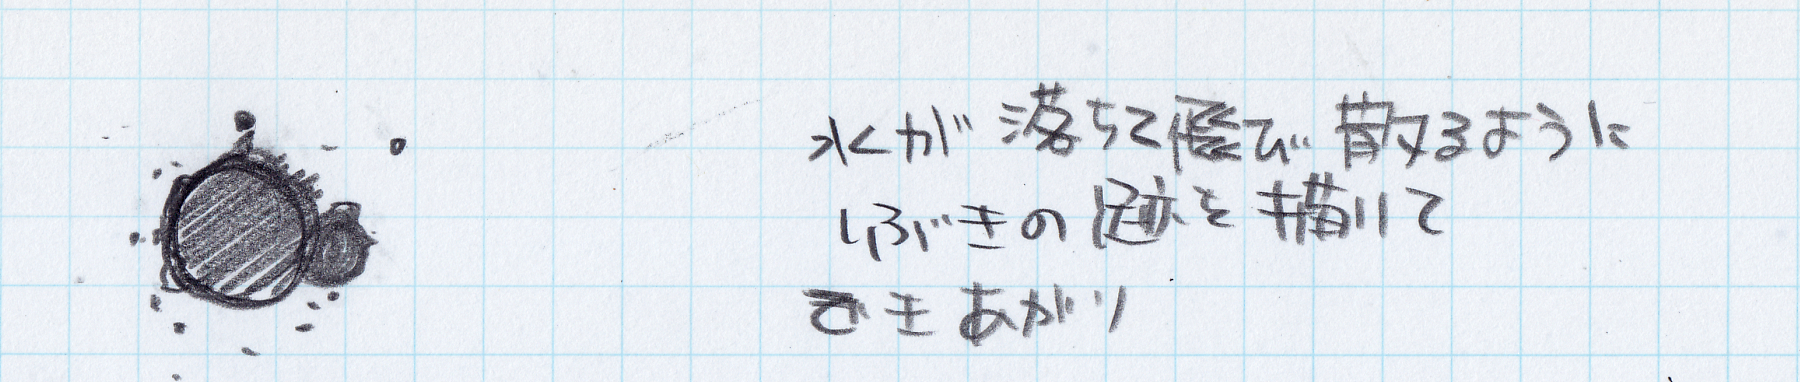 水が落ちて飛び散るように
しぶきの跡を描いて
できあがり